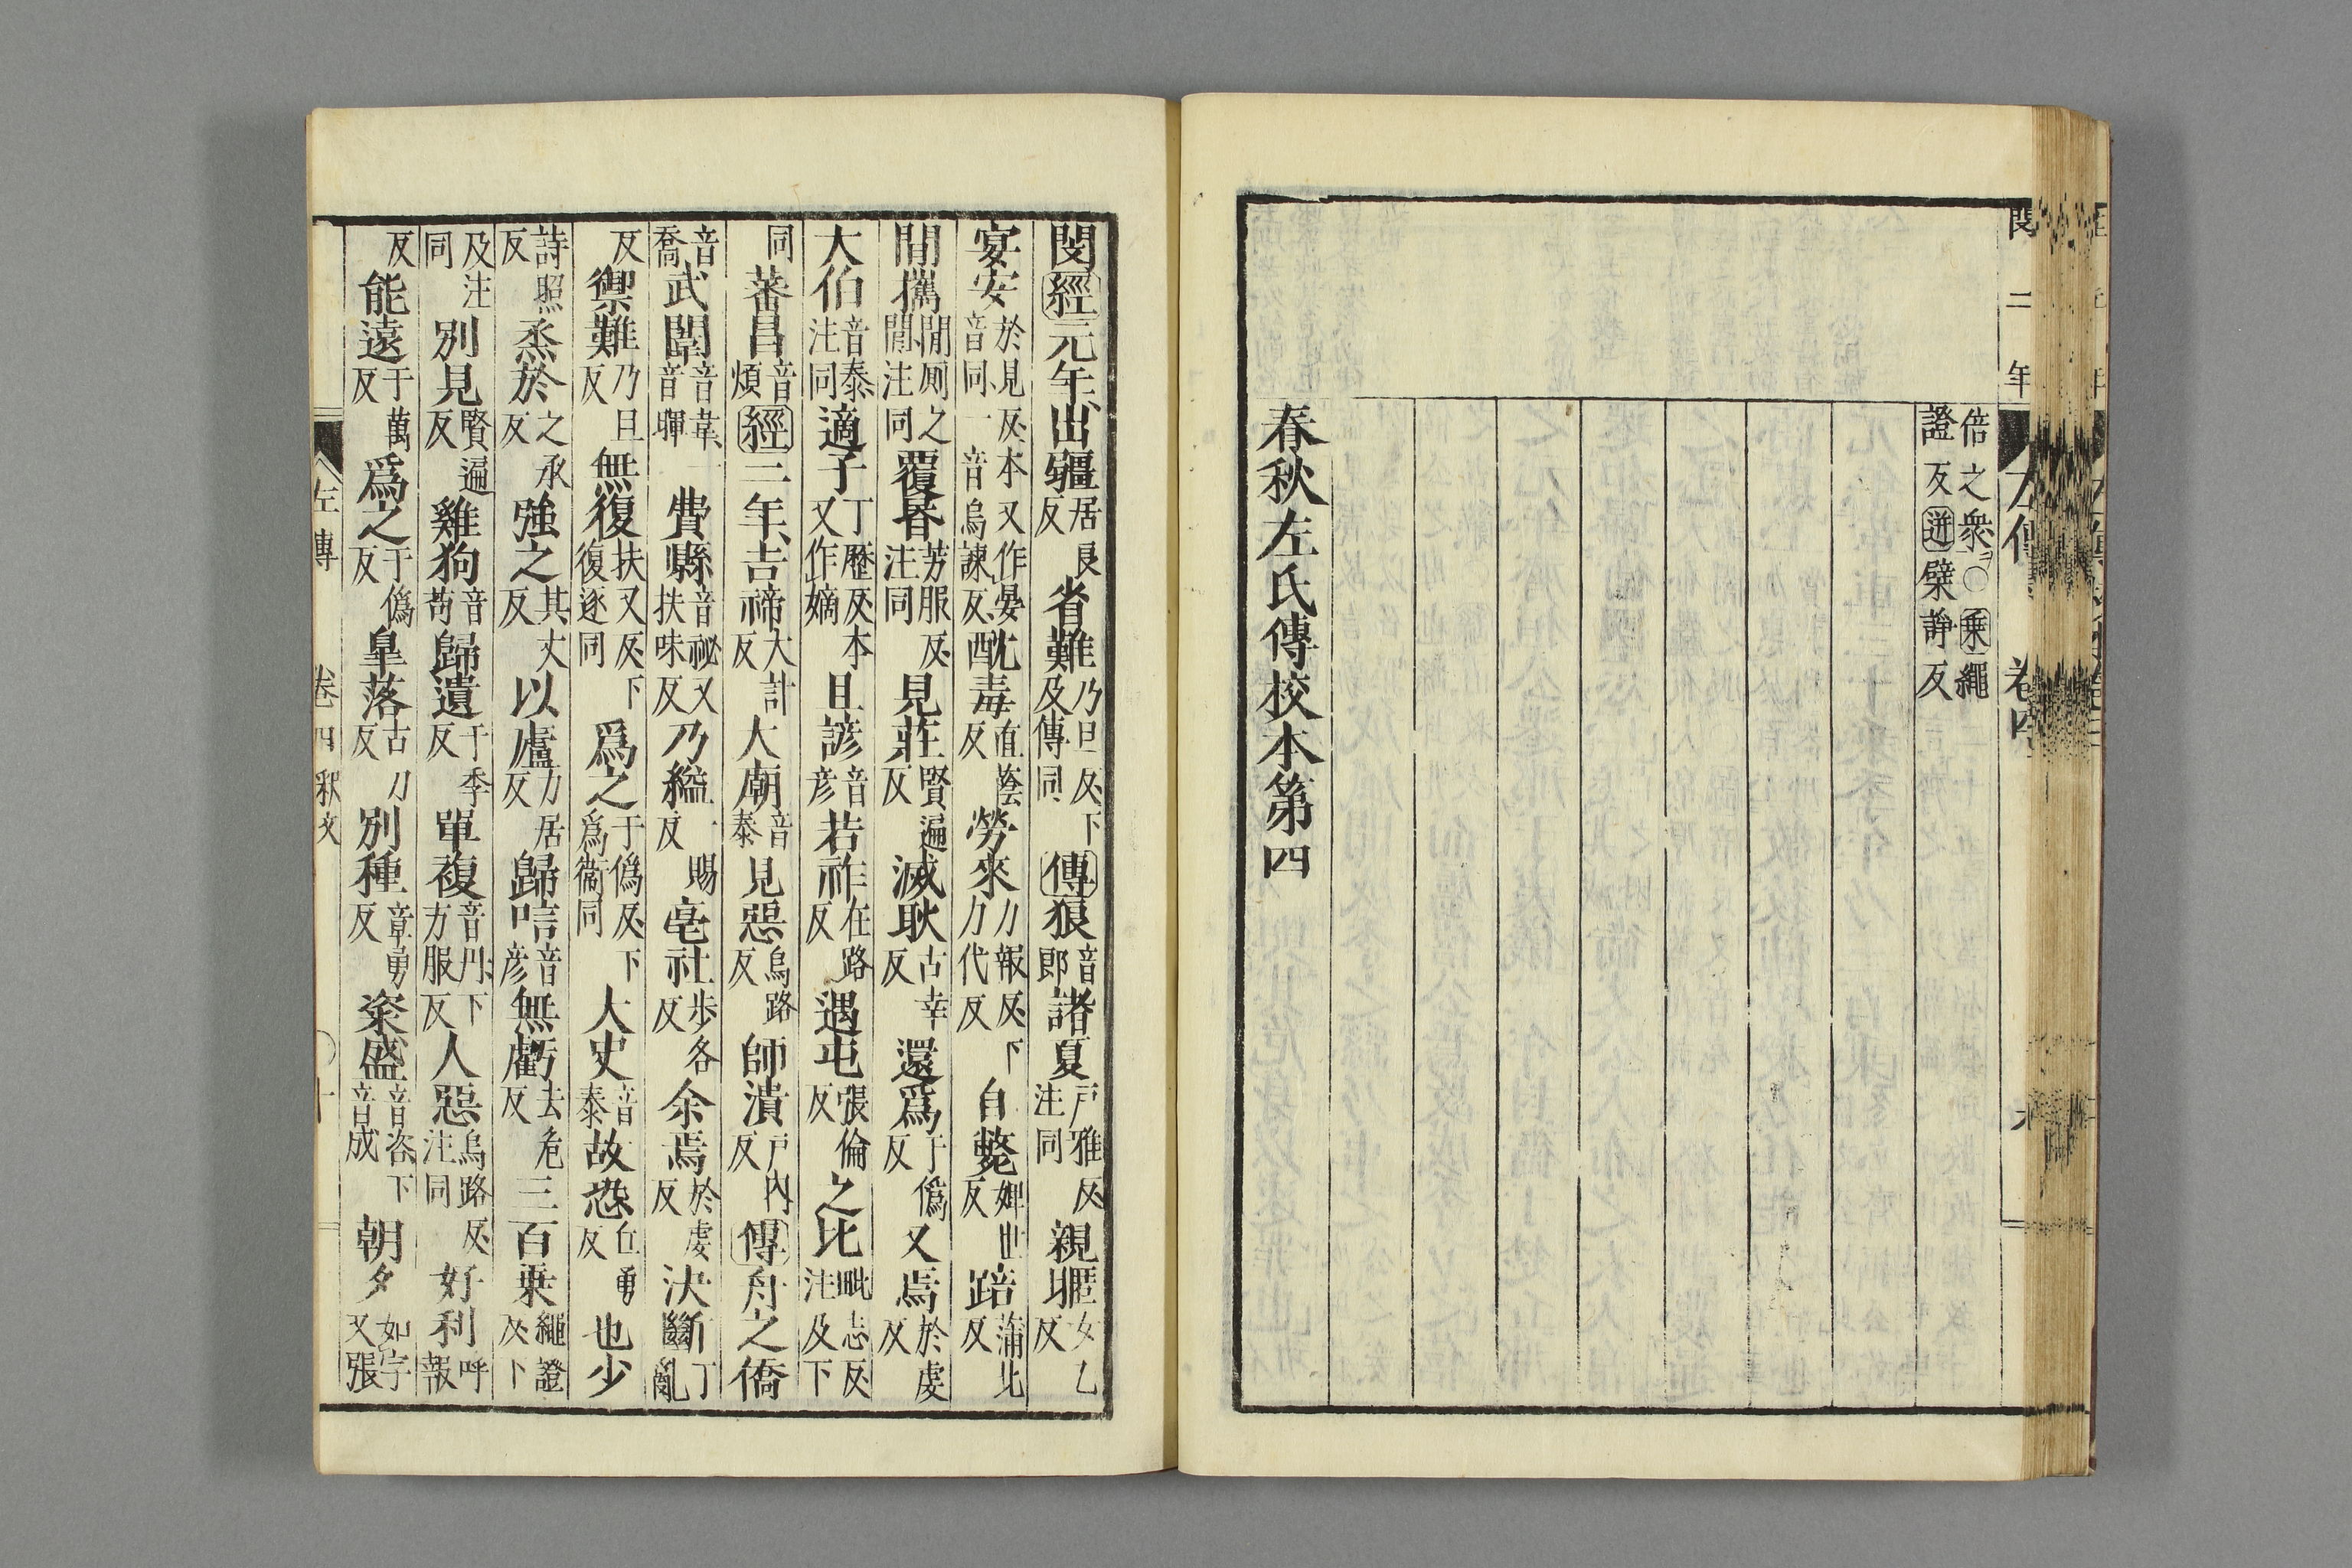 閔二年
左傳 卷四
倍之衆ヲ○乗繩
證反迸檗諍反
春秋左氏傳校本第四
閔經元年出疆居良反省難乃旦反下及傳同傳狼音郎諸夏戶雅反注同親暱女乙反
宴安於見反本又作晏音同一音烏諫反酖毒直蔭反勞來力報反下力代反自斃婢世反踣蒲北反
間攜間厠之間注同覆昏芳服反注同見莊賢遍反滅耿古幸反還爲于僞反又焉於虔反
大伯音泰注同適子丁歷反本又作嫡且諺音彦若祚在路反遇屯張倫反之比毗志反注及下
同蕃昌音煩經二年吉禘大計反大廟音泰見惡烏路反師潰戶內反傳舟之僑
音喬武闈音韋一音暉費縣音祕又扶味反乃縊一賜反亳社步各反余焉於虔反決斷丁亂
反禦難乃旦反無復扶又反下復逐同爲之于僞反下爲衞同大史音泰故恐丘勇反也少
詩照反烝於之承反強之其丈反以廬力居反歸唁音彦無虧去危反三百乗繩證反下
及注同別見賢遍反雞狗音苟歸遺于季反單複音丹下方服反人惡烏路反注同好利呼報
反能遠于萬反爲之于僞反皐落古刀反別種章勇反粢盛音咨下音成朝夕如字又張
左傳 卷四釈文 ○十